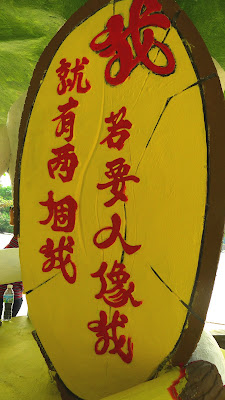 我
若要人像我
就有两個我